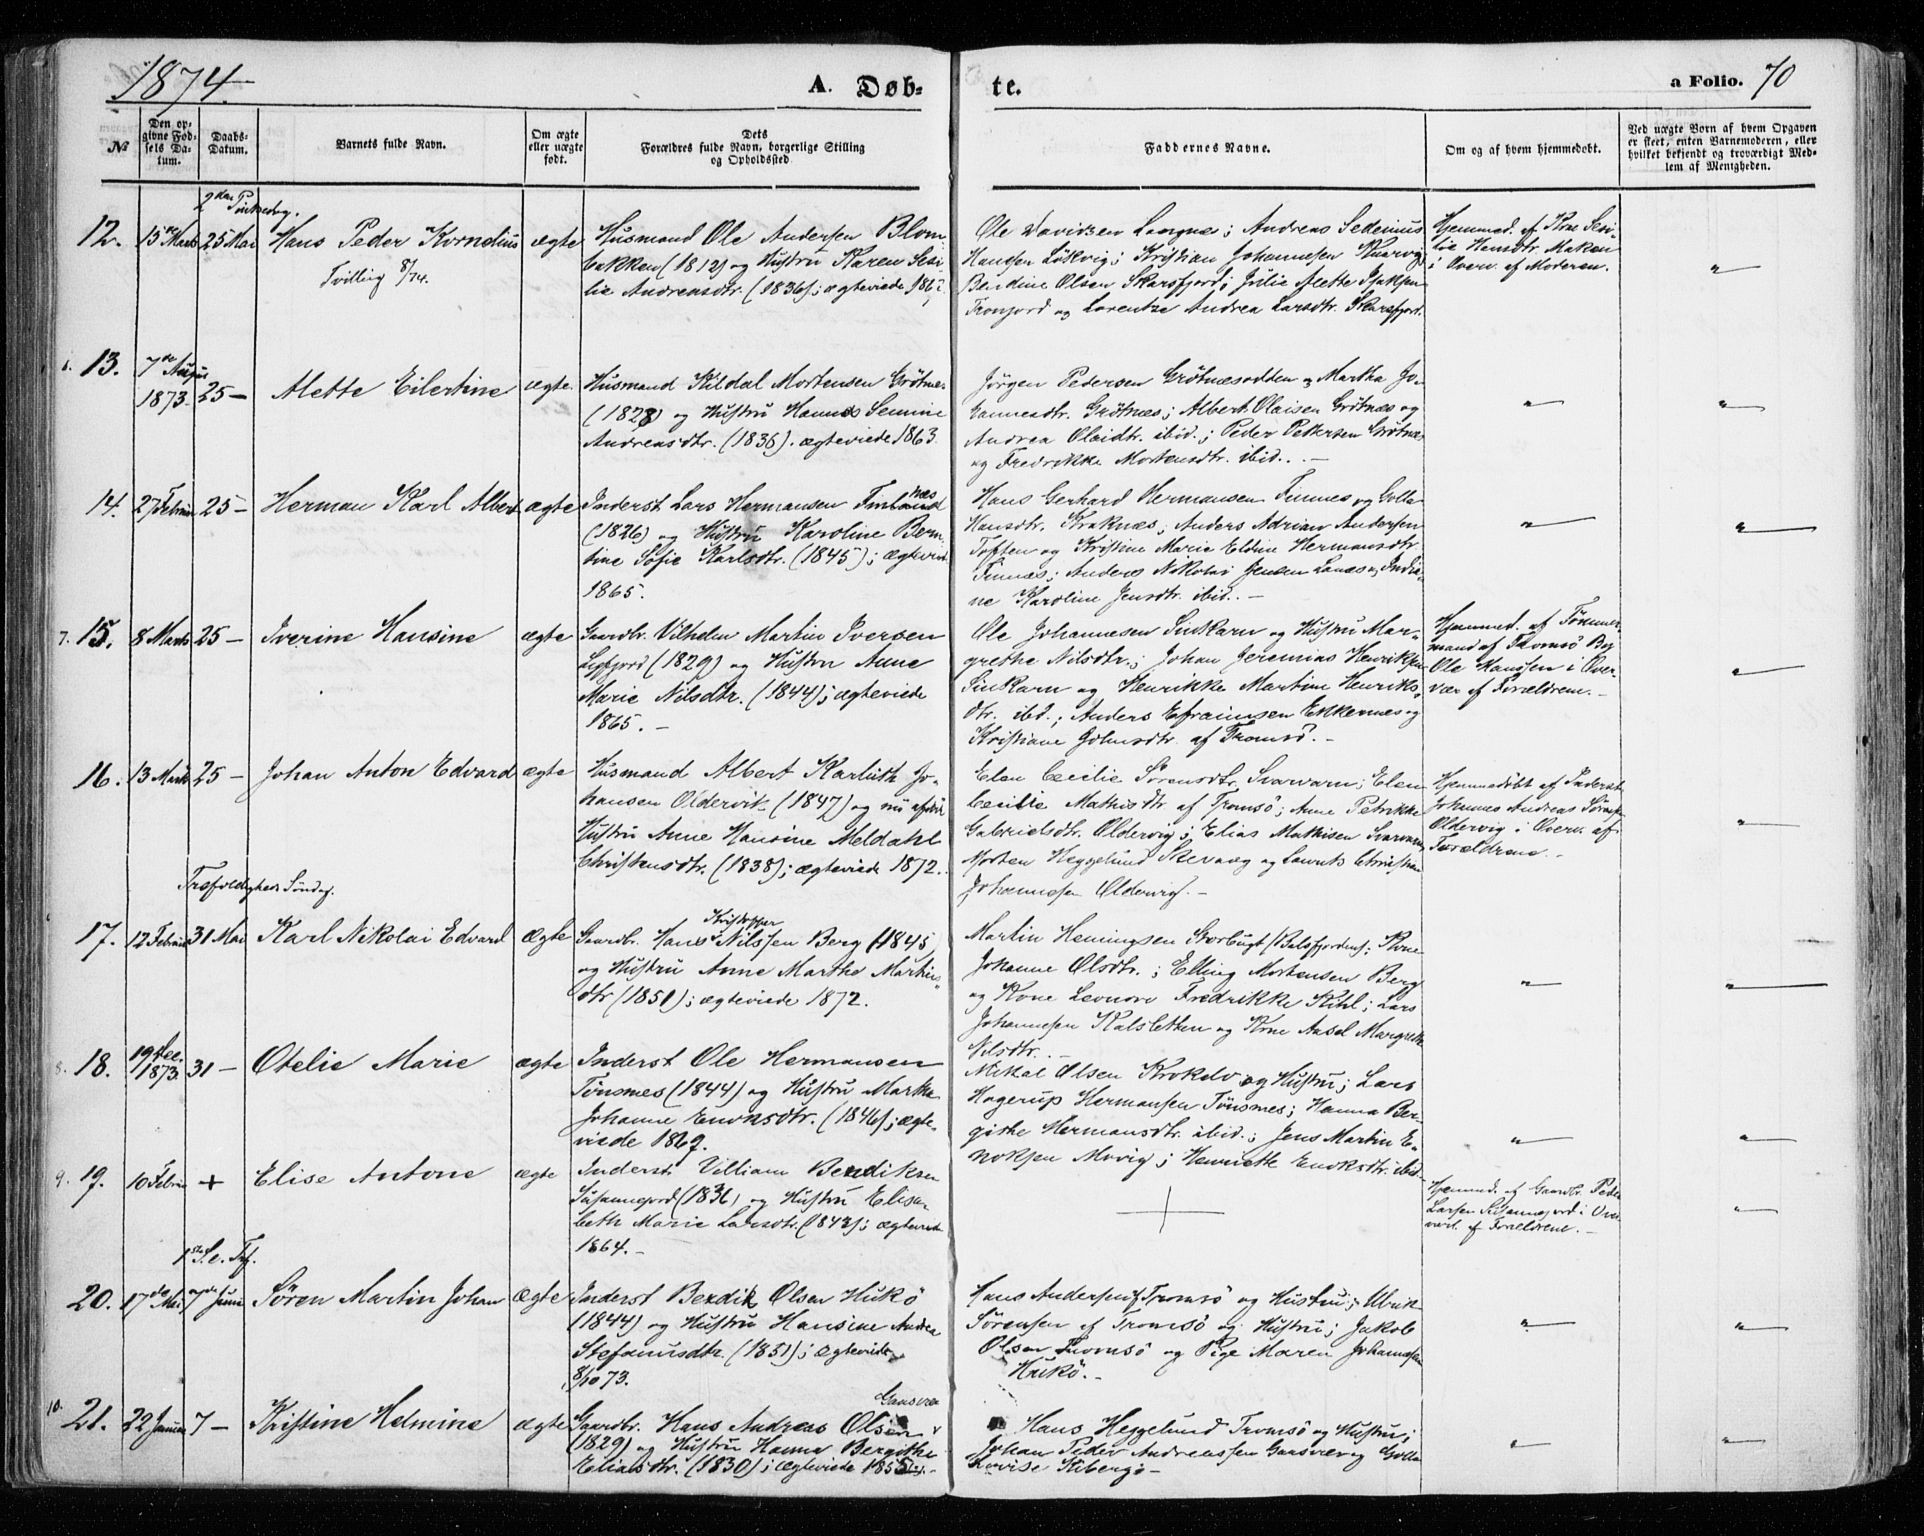 1874.
A. Døb=
te.
a Folio. 70
№
Den op-
givne Fød-
sels Da-
tum.
Daabs-
Datum.
Barnets fulde Navn.
Om ægte
eller uægte
født.
Dets
Forældres fulde Navn, borgerlige Stilling
og Opholdssted.
Faddernes Navne.
Om og af hvem hjemmedøbt.
Ved uægte Børn af hvem Opgaven
er skeet, enten Barnemoderen, eller
hvilket bekjendt og troværdigt Med-
lem af Menigheden.
2den Pintsedag.
12. 15de Marts 25 Mai Hans Peder Kornelius ægte
Tvilling 8/74.
Husmand Ole Andersen Blom-
bakken (1812) og Hustru Karen Sesi-
lie Andreasdtr. (1836); ægteviede
Ole Davidsen Langnes; Andreas Sedenius
Hanssen Løkvig; Kristian Johannesen Kvarvig
Bendine Olsen Skarsfjord; Julie Alette Isaksen
Tronjord og Lorentze Andrea Larsdtr. Skarsfjord.
Hjemmed. af Kone Sesi-
lie Hansdtr. Makan
i Overv. af Moderen.
"
13. 7de August
1873. 25 — Alette Eilertine ægte.
Husmand Kildal Mortensen Grøtnes
(1828) og Hustru Hannes Semine
Andreasdtr. (1836). ægteviede 1863.
Jørgen Pedersen Grøtnæsodden og Martha Jo-
hannesdtr. Grøtnæs; Albert Olaisen Grøtnæs og
Andrea Olaidtr. ibid.; Peder Pettersen Grøtnæs
og Fredrikke Mortensdtr. ibid. . —
"
"
14. 27 Februar 25 — Herman Karl Albert ægte
Inderst Lars Hermansen Finnes
(1826) og Hustru Karoline Bern-
tine Sofie Karlsdtr. (1845); ægteviede
1865.
Hans Gerhard Hermansen Finnes og Golla
Hansdtr. Kraknæs; Anders Adrian Andersen
Toften og Kristine Marie Eldine Hermansdtr.
Finnæs; Anders Nikolai Jensen Lanes og India-
ne Karoline Jensdtr. ibid. . —
"
"
7. 15. 8 Marts 25 — Iverine Hansine ægte
Gaardbr. Vilhelm Martin Iversen
Lyfjord (1829) og Hustru Anne
Marie Nilsdtr. (1844); ægteviede
1865. —
Ole Johannesen Sinkarn og Hustru Mar-
grethe Nilsdtr.; Johan Jeremias Henriksen
Sinkarn og Henrikke Martine Henriks-
dtr. ibid.; Anders Efraimsen Ekkernes og
Kristiane Johnsdtr. af Tromsø. —
Hjemmed. af Tømmer-
mand af Tromsø By
Ole Hanssen i Over-
vær af Forældrene. —
"
16. 13 Marts 25 — Johan Anton Edvard ægte
Husmand Albert Karluth Jo-
hansen Oldervik (1847) og nu afdød
Hustru Anne Hansine Meldahl
Christensdtr. (1838); ægteviede 1872.
Elen Cecilie Sørensdtr. Svarvarn; Elen
Cecilie Mathisdtr. af Tromsø; Anne Petrikke
Gabrielsdtr. Oldervig; Elias Mathisen Svarvarn;
Morten Heggelund Skervaag og Laurits Christian
Johannesen Oldervig. —
Hjemmedøbt af Inderst
Johannes Andreas Sørensen
Oldervig i Overv. af
Forældrene. —
"
Trefoldigheds Søndag.
17. 12 Februar 31 Mai Karl Nikolai Edvard Ægte
Gaardbr. Hans Kristoffer Nilssen Berg (1845)
og Hustru Anne Marthe Martins-
dtr. (1850); ægteviede 1872.
Martin Hemingsen Storbugt (Balsfjorden); Kone
Johanne Olsdtr.; Elling Mortensen Berg
og Kone Leonore Fredrikke Kihl; Lars
Johannesen Kalsletten og Kone Axsel Margrethe
Nilsdtr. . —
"
"
8. 18. 19 Dec.
1873. 31 — Otelie Marie ægte
Inderst Ole Hermansen
Tønsnes (1844) og Hustru Martha
Johanne Enoksdtr. (1846); ægte-
viede 1869.
Mikal Olsen Krokelv og Hustru; Lars
Hagerup Hermansen Tønsnes; Hanna Ber-
githe Hermansdtr. ibid.; Jens Martin E-
noksen Movig; Henriette Enoksdtr. ibid.
"
"
9. 19. 10 Februar + Elise Antone ægte
Inderst Villiam Bendiksen
Susannejord (1836) og Hustru Elisa-
beth Marie Larsdtr. (1843); ægteviede
1864. —
Hjemmed. af Gaardbr. Peder
Larsen Susannejord i Over-
vært. af Forældrene. —
"
1ste S. e. Tref.
20. 17de Mai 7de Juni Søren Martin Johan Ægte
Inderst Bendik Olsen Hukø
(1844) og Hustru Hansine Andrea
Stefanusdtr. (1851); ægteviede
8/10 73.
Hans Andersen af Tromsø og Hustru; Ulrik
Sørensen af Tromsø og Hustru; Jakob
Olsen Tromsø og Pige Maren Johannesen
Hukø. —
"
"
10. 21. 22 Januar 7 — Kristine Helmine ægte
Gaardbr. Hans Andreas Olsen Gaasvær
(1829) og Hustru Hanna Bergithe
Eliasdtr. (1830); ægteviede 1855. —
Hans Heggelund Tromsø og Hustru;
Johan Peder Andreassen Gaasvær og Golla
Lovise Kiberg. —
"
"